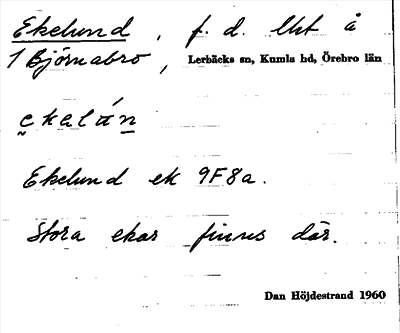 Ekelund, f. d. lht å
1 Björnabro, Lerbäcks sn, Kumla hd, Örebro län
ekalán
Ekelund ek 9F8a.
Stora ekar finnes där.
Dan Höjdestrand 1960